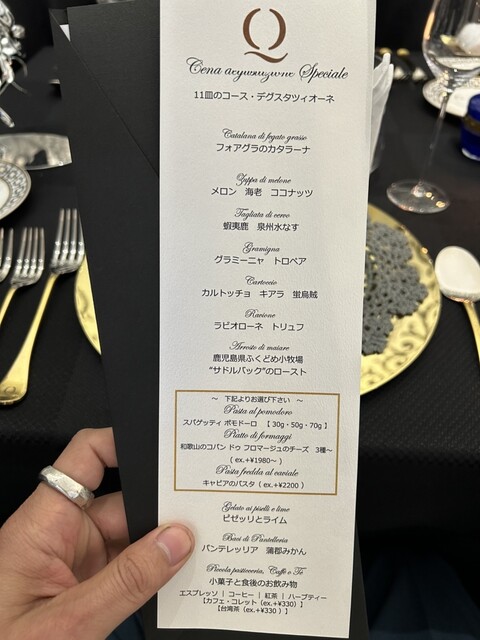 Q
Cena degustazione Speciale
11皿のコース・デグスタツィオーネ
Catalana di fegato grasse
フォアグラのカタラーナ
Zuppa di melone
メロン 海老 ココナッツ
Tagliata di cervo
蝦夷鹿 泉州水なす
Gramigna
グラミーニャ トロペア
Cartoccio
カルトッチョ キアラ 蛍烏賊
Ravione
ラビオローネ トリュフ
Arrosto di maiare
鹿児島県ふくどめ小牧場
“サドルバック”のロースト
～ 下記よりお選び下さい ～
Pasta al pomodoro
スパゲッティ ポモドーロ 【30g・50g・70g】
Piatto di formaggi
和歌山のコパン ドゥ フロマージュのチーズ 3種～
( ex.+¥1980～ )
Pasta fredda al caviale
キャビアのパスタ ( ex.+¥2200 )
Gelato ai piselli e lime
ピゼッリとライム
Baci di Pantelleria
パンテレッリア 蒲郡みかん
Piccola pasticceria, Caffè o Te
小菓子と食後のお飲み物
エスプレッソ | コーヒー | 紅茶 | ハーブティー
【カフェ・コレット（ex.+¥330）】
【台湾茶（ex.+¥330 ）】